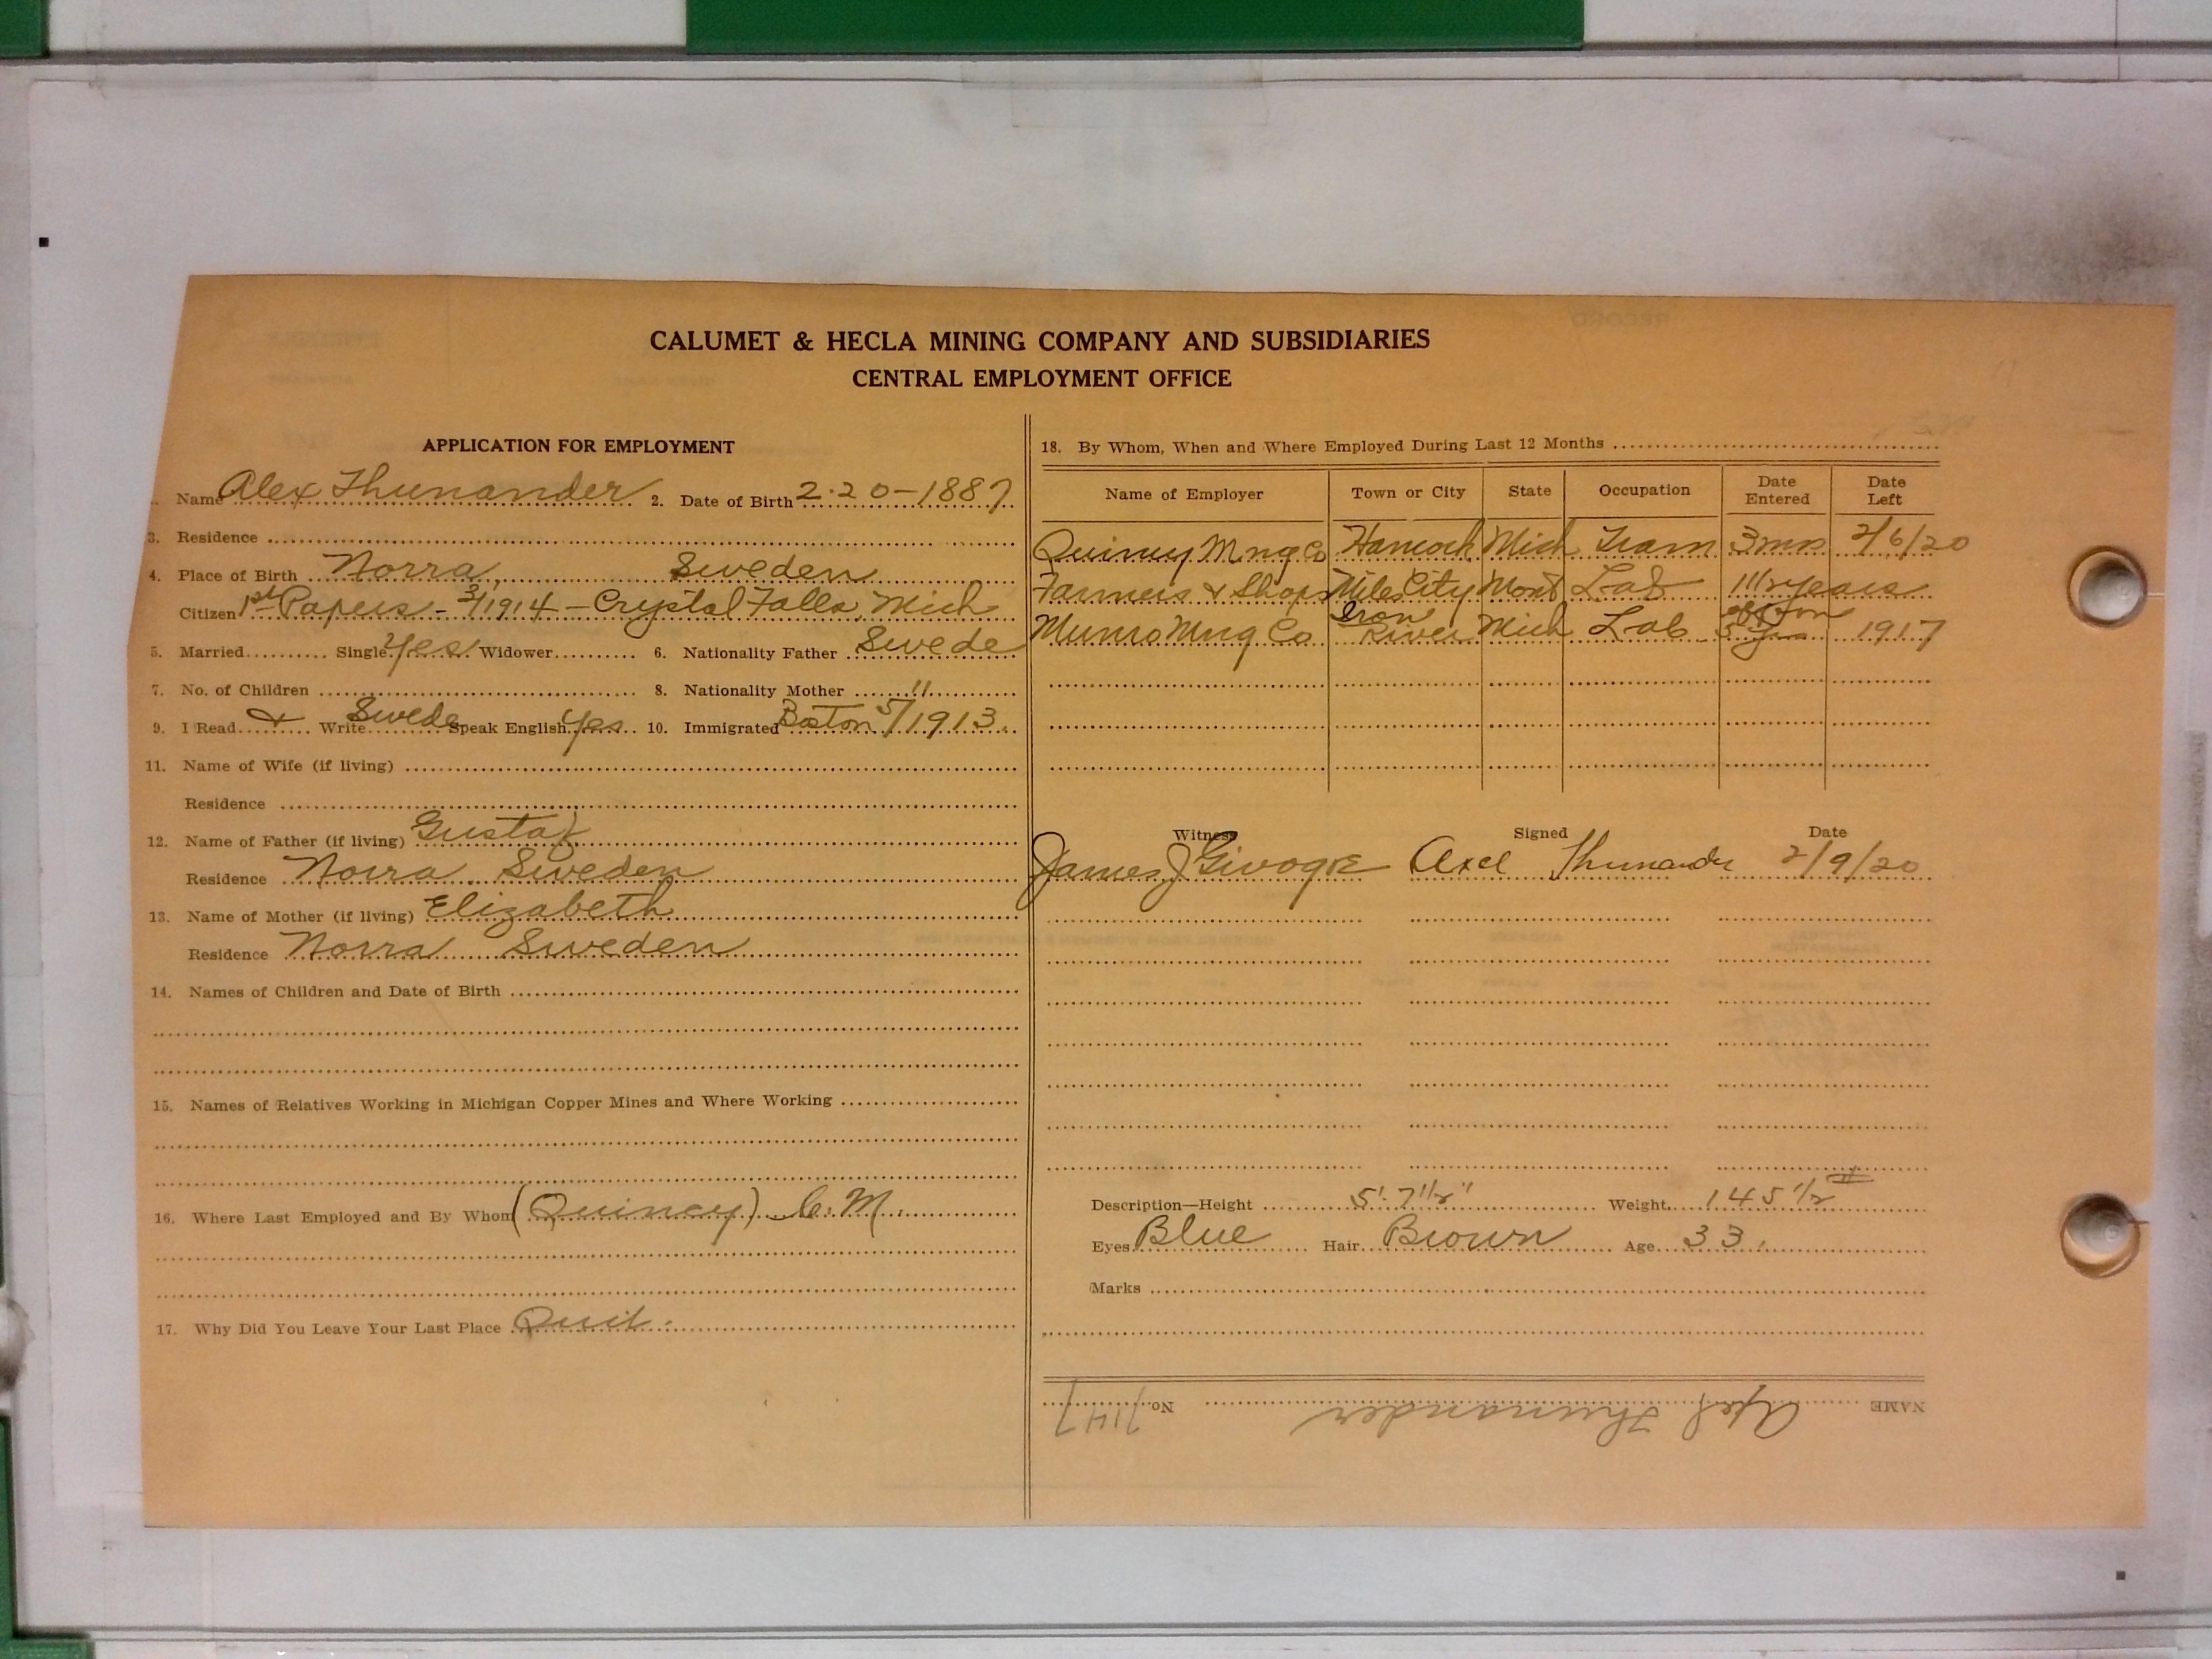 CALUMET & HECLA MINING COMPANY AND SUBSIDIARIES
CENTRAL EMPLOYMENT OFFICE
APPLICATION FOR EMPLOYMENT
Name Alex Thunander 2. Date of Birth 2-20-1887
3. Residence
4. Place of Birth Norra, Sweden
Citizen 1st Papers - 3/1914 - Crystal Falls, Mich
5. Married Single Yes Widower 6. Nationality Father Swede
7. No. of Children 8. Nationality Mother "
9. I Read & Write Swede Speak English Yes 10. Immigrated Boston 5/1913.
11. Name of Wife (if living)
Residence
12. Name of Father (if living) Gustaf
Residence Norra Sweden
13. Name of Mother (if living) Elizabeth
Residence Norra Sweden
14. Names of Children and Date of Birth
15. Names of Relatives Working in Michigan Copper Mines and Where Working
16. Where Last Employed and By Whom (Quincy) C.M.
17. Why Did You Leave Your Last Place Quit.
18. By Whom, When and Where Employed During Last 12 Months
Name of Employer Town or City State Occupation Date Entered Date Left
Quincy Mng Co Hancock Mich Tram 3 mos 2/6/20
Farmers & Shops Miles City Mont Lab 1 1/2 years
Munro Mng Co Iron River Mich Lab off & on 1917
Witness Signed Date
James J Axel Thunander 2/9/20
Description—Height 5' 7 1/2" Weight 145 1/2 #
Eyes Blue Hair Brown Age 33.
Marks
NAME Axel Thunander No. 7147